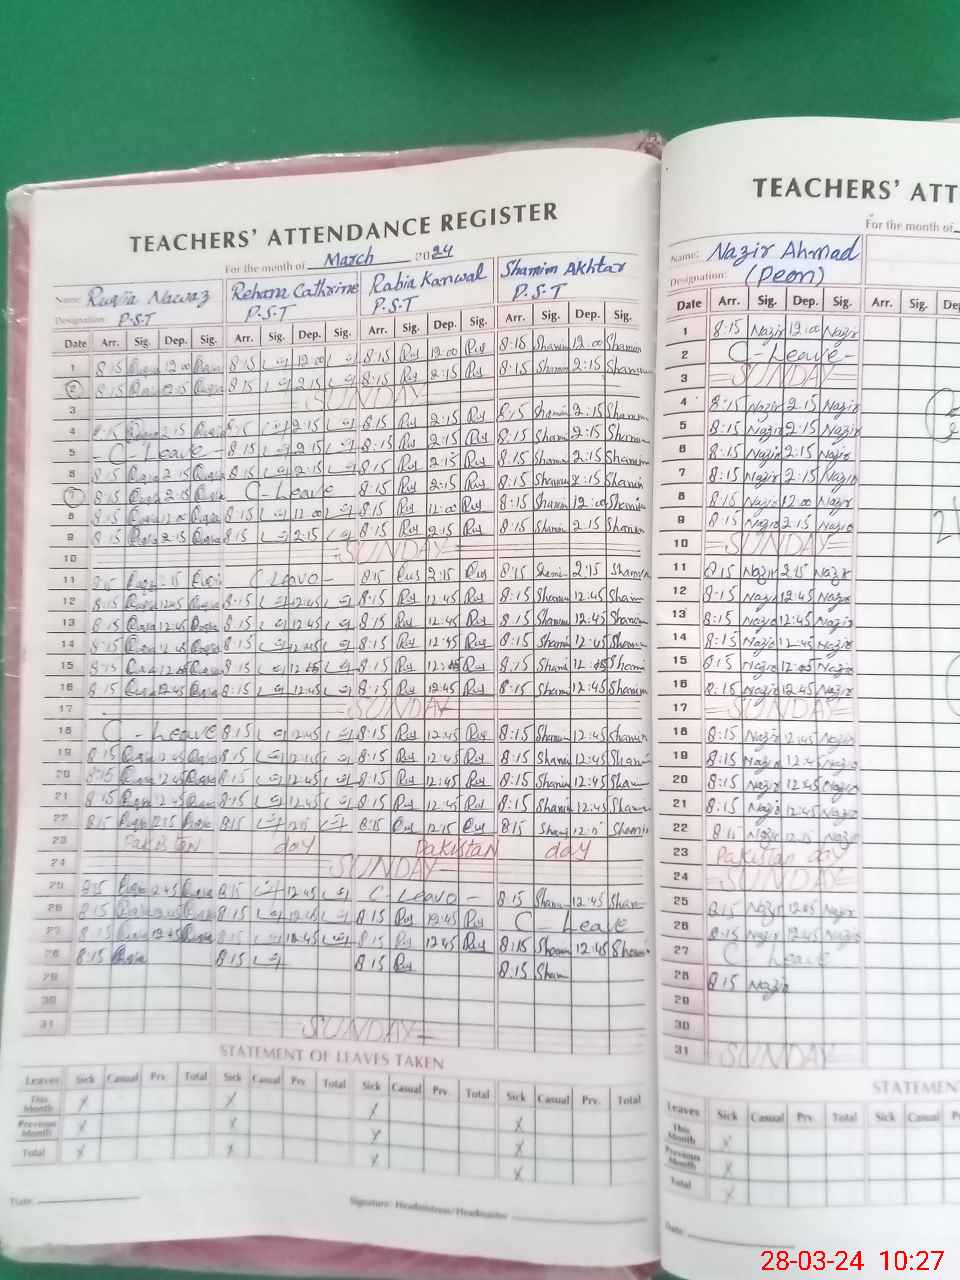 TEACHERS' ATTENDANCE REGISTER
For the month of March 2024
Name: Ruqia Nawaz Rehana Cathrine Rabia Kanwal Shamim Akhtar
Designation: P.S.T P.S.T P.S.T P.S.T
Date Arr. Sig. Dep. Sig. Arr. Sig. Dep. Sig. Arr. Sig. Dep. Sig. Arr. Sig. Dep. Sig.
1 8:15 12:00 8:15 12:00 8:15 12:00 8:15 Shamim 12:00 Shamim
2 8:15 2:15 8:15 2:15 8:15 2:15 8:15 Shamim 2:15 Shamim
3 SUNDAY
4 8:15 2:15 8:15 2:15 8:15 2:15 8:15 Shamim 2:15 Shamim
5 - C - Leave - 8:15 2:15 8:15 2:15 8:15 Sham 2:15 Shamim
6 8:15 2:15 8:15 2:15 8:15 2:15 8:15 Shamim 2:15 Shamim
7 8:15 2:15 C - Leave 8:15 2:15 8:15 Shamim 2:15 Shamim
8 8:15 12:00 8:15 12:00 8:15 12:00 8:15 Shamim 12:00 Shamim
9 8:15 2:15 8:15 2:15 8:15 2:15 8:15 Shamim 2:15 Shamim
10 SUNDAY
11 8:15 2:15 C Leave - 8:15 2:15 8:15 2:15 Shamim
12 8:15 12:45 8:15 12:45 8:15 12:45 8:15 Shamim 12:45 Sham
13 8:15 12:45 8:15 12:45 8:15 12:45 8:15 Sham 12:45 Sham
14 8:15 12:45 8:15 12:45 8:15 12:45 8:15 Shamim 12:45 Sham
15 8:15 8:15 8:15 8:15 Shami Shami
16 8:15 12:45 8:15 12:45 8:15 12:45 8:15 Sham 12:45 Shamim
17 SUNDAY
18 C - Leave 8:15 12:45 8:15 12:45 8:15 Sham 12:45 Sham
19 8:15 12:45 8:15 12:45 8:15 12:45 8:15 Sham 12:45 Sham
20 8:15 12:45 8:15 12:45 8:15 12:45 8:15 Shamim 12:45 Sham
21 8:15 12:45 8:15 12:45 8:15 12:45 8:15 Shami 12:45 Sham
22 8:15 12:15 8:15 12:15 8:15 12:15 8:15 Sham 12:15 Shamim
23 Pakistan day Pakistan day
24 SUNDAY
25 8:15 12:45 8:15 12:45 C - Leave - 8:15 Sham 12:45 Sham
26 8:15 12:45 8:15 12:45 8:15 12:45 C Leave
27 8:15 12:45 8:15 12:45 8:15 12:45 8:15 Shamim 12:45 Shami
28 8:15 8:15 8:15 8:15 Sham
29
30
31 SUNDAY
STATEMENT OF LEAVES TAKEN
Leaves Sick Casual Prv. Total Sick Casual Prv. Total Sick Casual Prv. Total Sick Casual Prv. Total
This Month x x x x
Previous Month x x x x
Total x x x x
Date Signature: Headmistress/Headmaster
TEACHERS' ATT
For the month of
Name: Nazir Ahmad
Designation: (Peon)
Date Arr. Sig. Dep. Sig. Arr. Sig.
1 8:15 Nazir 12:00 Nazir
2 C - Leave -
3 SUNDAY
4 8:15 Nazir 2:15 Nazir
5 8:15 Nazir 2:15 Nazir
6 8:15 Nazir 2:15 Nazir
7 8:15 Nazir 2:15 Nazir
8 8:15 Nazir 12:00 Nazir
9 8:15 Nazir 2:15 Nazir
10 SUNDAY
11 8:15 Nazir 2:15 Nazir
12 8:15 Nazir 12:45 Nazir
13 8:15 Nazir 12:45 Nazir
14 8:15 Nazir 12:45 Nazir
15 8:15 Nazir Nazir
16 8:15 Nazir 12:45 Nazir
17 SUNDAY
18 8:15 Nazir 12:45 Nazir
19 8:15 Nazir 12:45 Nazir
20 8:15 Nazir 12:45 Nazir
21 8:15 Nazir 12:45 Nazir
22 8:15 Nazir 12:15 Nazir
23 Pakistan day
24 SUNDAY
25 8:15 Nazir 12:45 Nazir
26 8:15 Nazir 12:45 Nazir
27 C Leave
28 8:15 Nazir
29
30
31 SUNDAY
STATEMENT
Leaves Sick Casual Prv. Total Sick Casual Prv.
This Month x
Previous Month x
Total x
Date
28-03-24 10:27